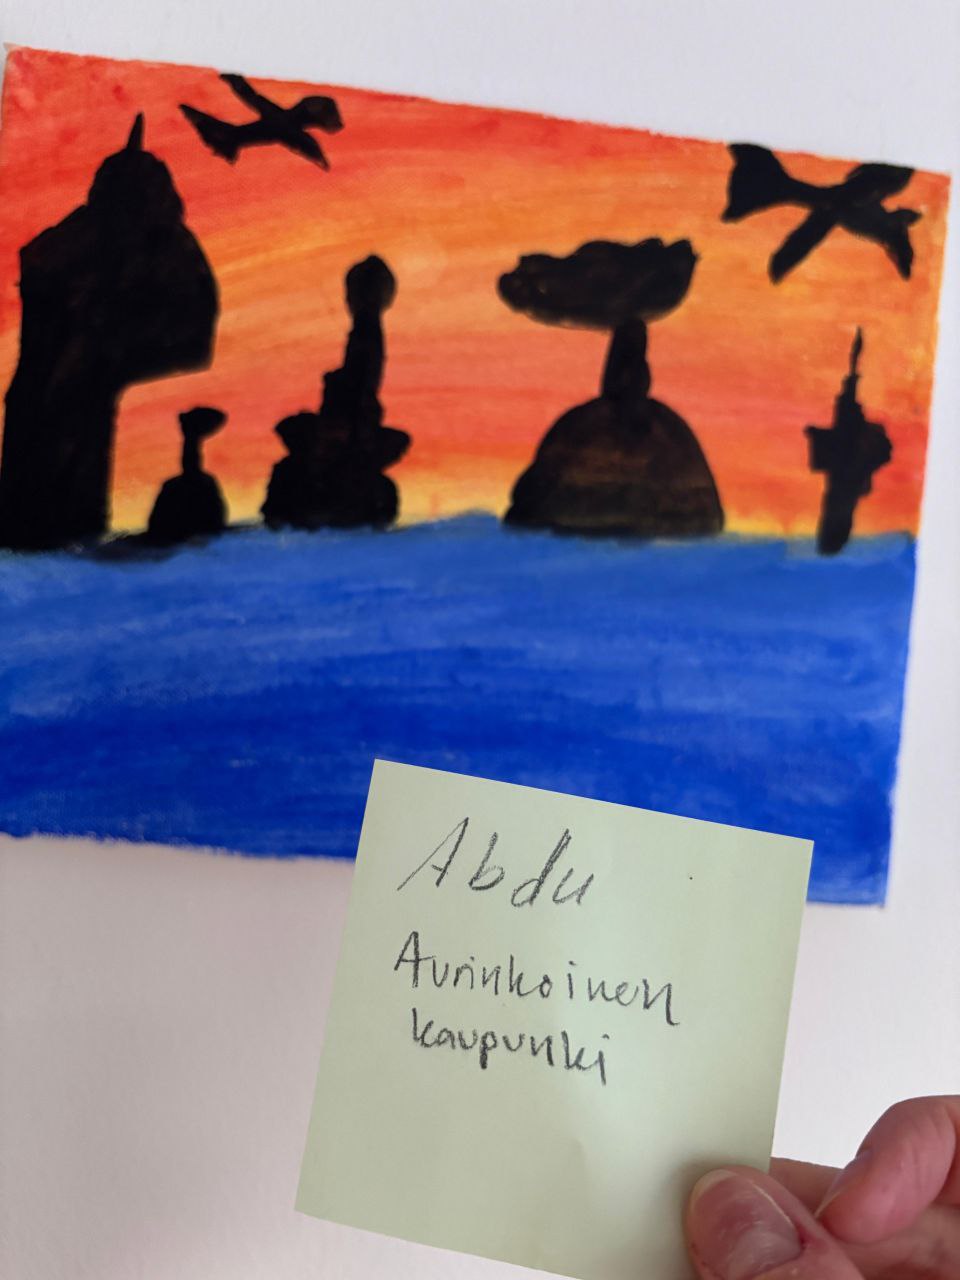 Abdu
Aurinkoinen
kaupunki